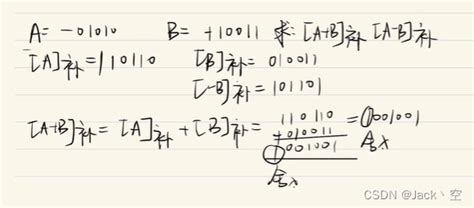 A= -01010 B= +10011 求: [A+B]补 [A-B]补
[A]补=110110 [B]补= 010011
[-B]补= 101101
[A+B]补= [A]补+[B]补= 110110 =0001001
+010011 舍λ
1001001
舍λ
CSDN @Jack丶空